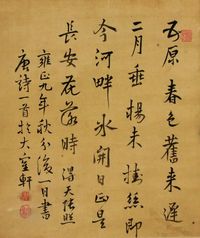 五原春色舊來遲
二月垂楊未掛絲即
今河畔冰開日正是
長安花落時 張照
雍正九年秋分後日書
唐詩一首於大軒